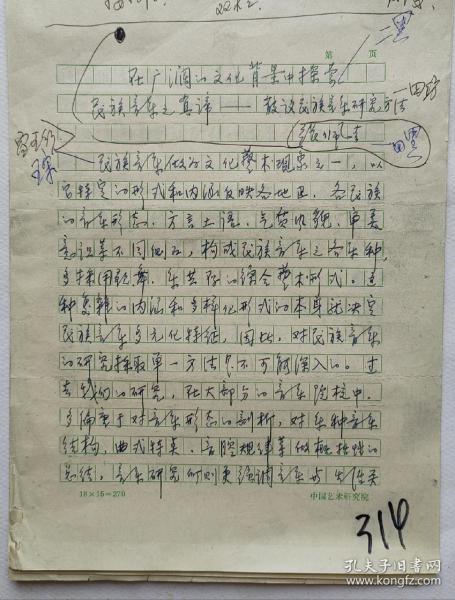 第 页
在广阔的文化背景中探索
民族音乐之真谛——散谈民族音乐研究方法
二黑
一四切
四黑
民族音乐做为文化艺术现象之一,以
它特定的形式和内涵反映各地区、各民族
的音乐形态、方言土语、气质风貌、审美
意识等不同侧面,构成民族音乐之各乐种,
多採用歌舞、乐其际的综合艺术形式。这
种复杂的内涵和多样化形式的本身就决定
民族音乐多元化特征,因此,对民族音乐
的研究採取单一方法是不可能深入的。过
去我们的研究,在大部分的音乐院校中,
多偏重于对音乐形态的剖析,对乐种音乐
结构、曲式特点、音腔规律等做概括性的
总结,音乐研究所则更强调音乐与
18×15=270
中国艺术研究院
314
孔夫子旧书网
www.kongfz.com